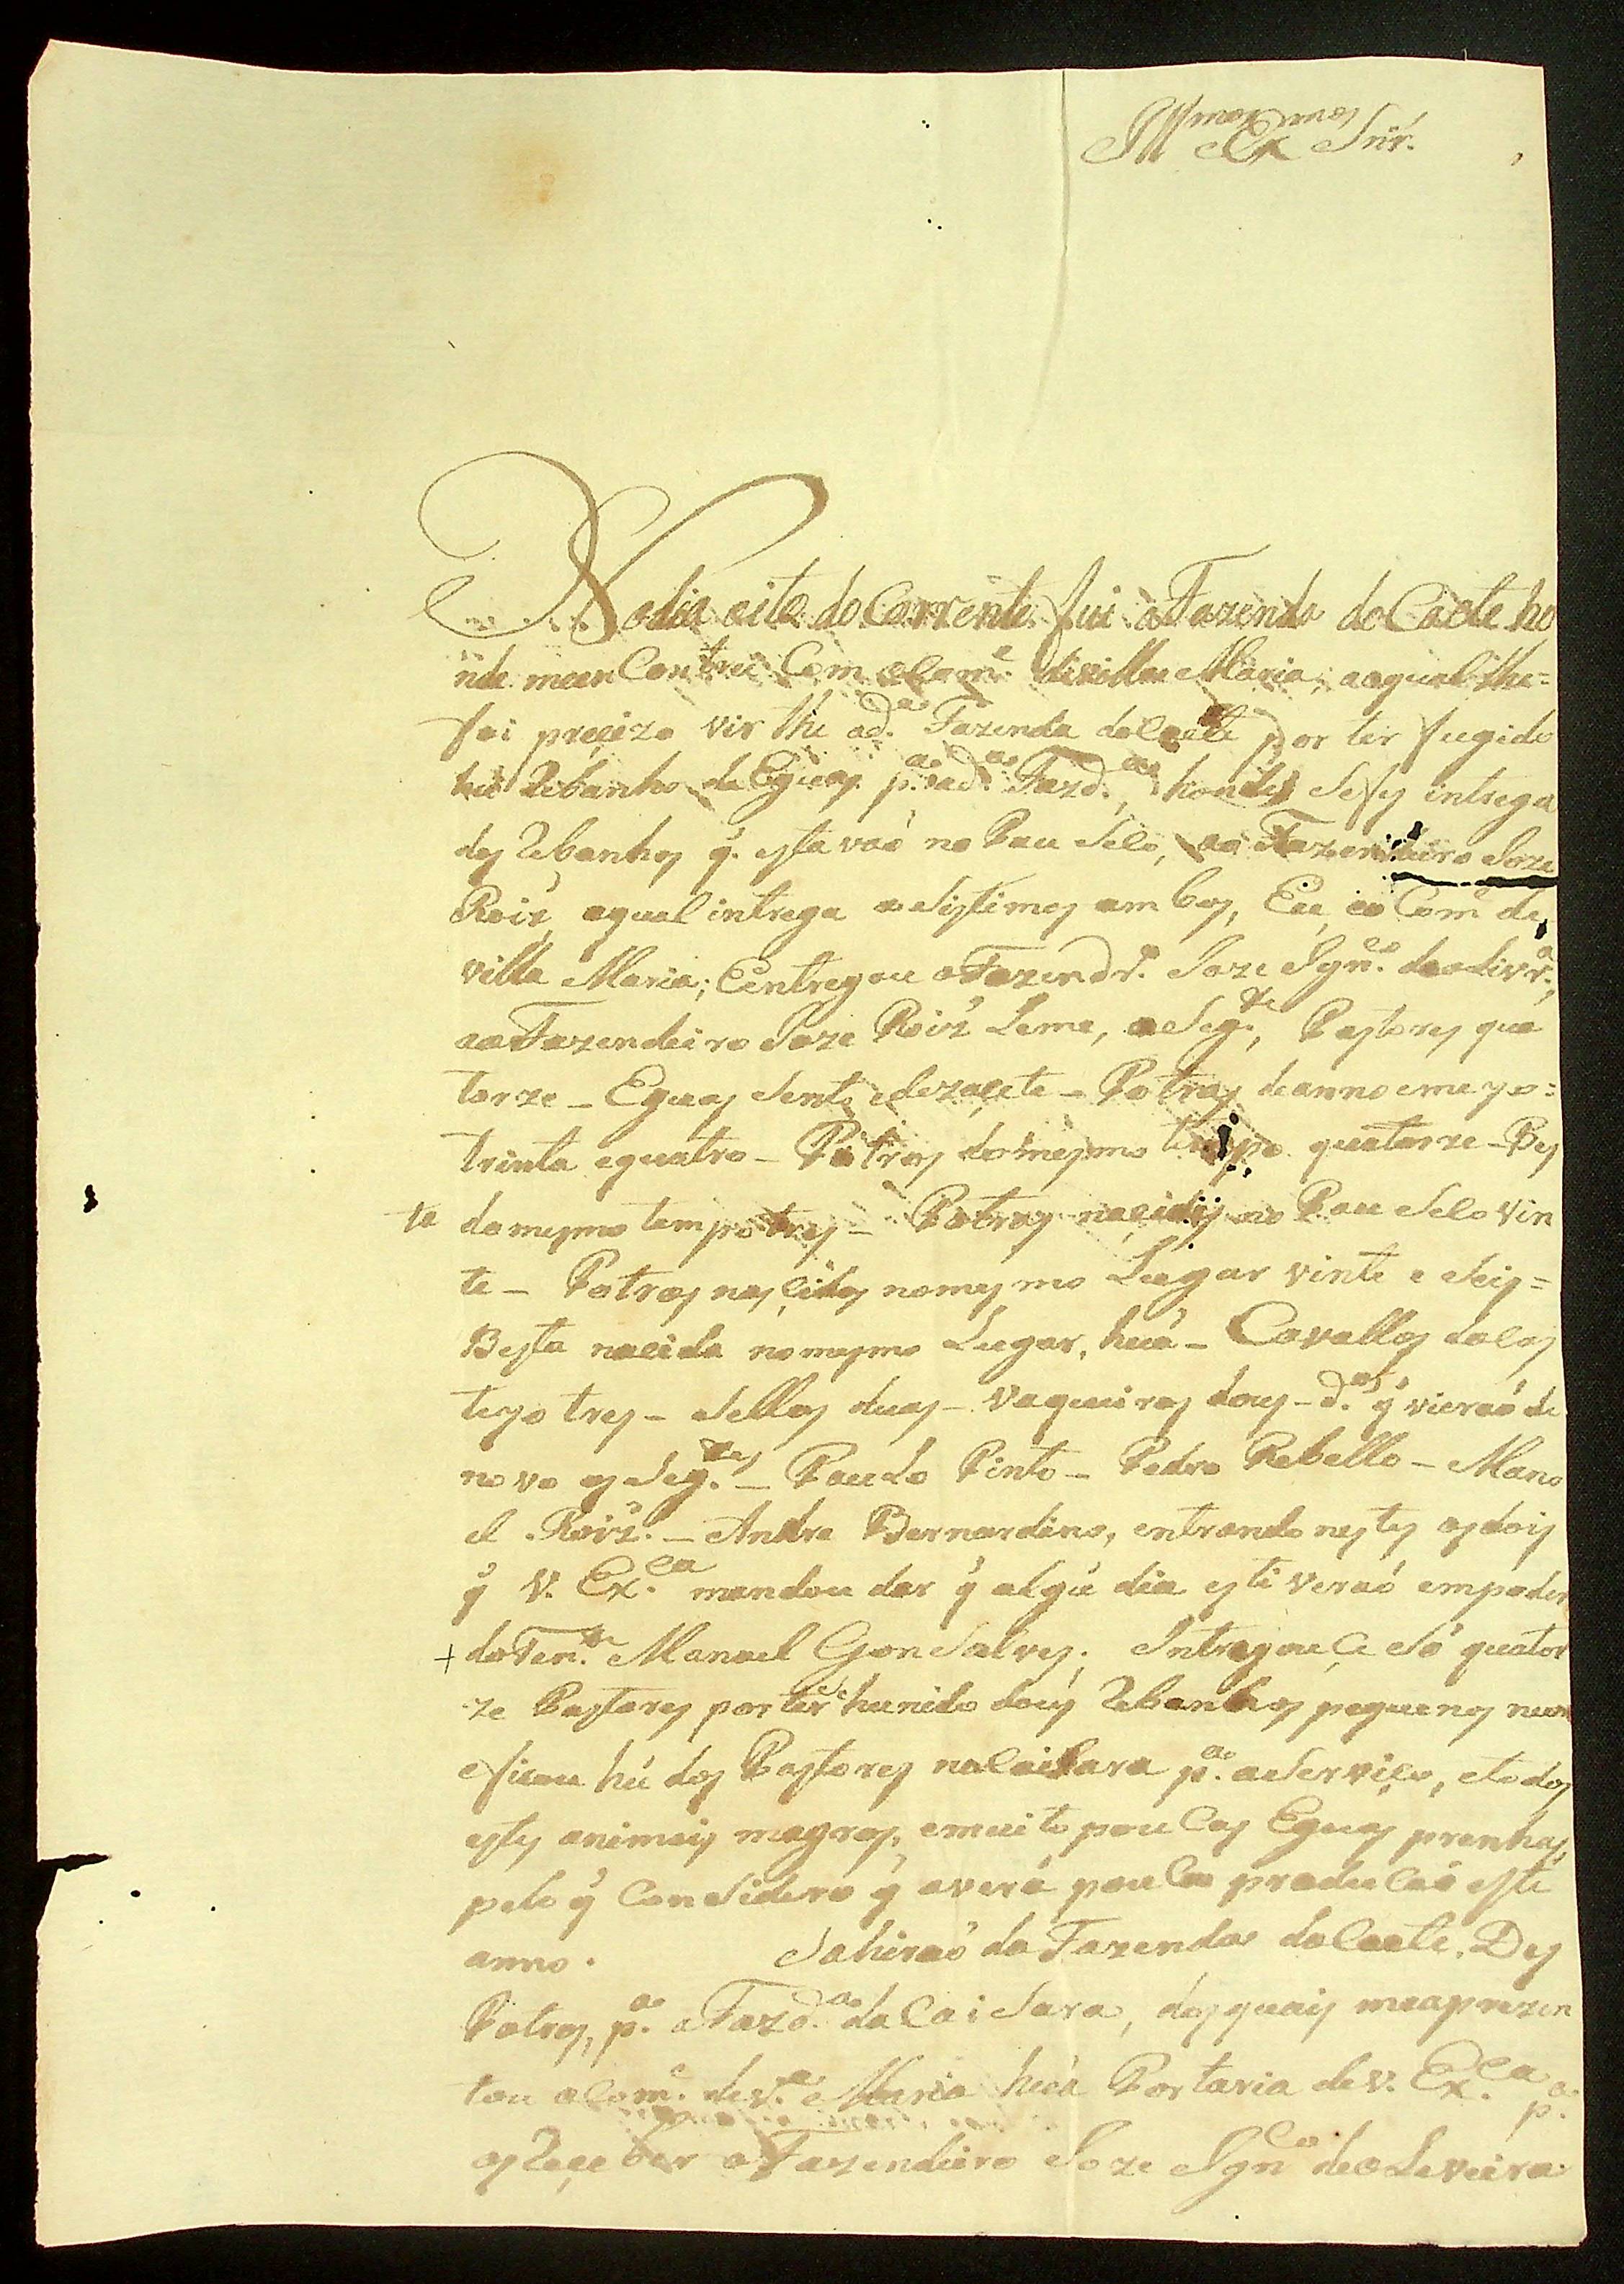 Illmo. e Exmo. Snr.
No dia oito do Corrente fui a Fazenda do Caete ho
nde meen Contrei Com o Come. de villa Maria, aoqual lhe=
foi preçizo vir the ada. Fazenda do Caete por ter fugido
hũ Rebanho de Egúas pa. ada. Fazda., honde Se fes intrega
dos Rebanhos q̃. estavaõ no Pau Seco, ao Fazendeiro Joze
Roiz', aqual intrega aSistimos ambos, Eu, eo Come. de
villa Maria; Eentregou oFazendro. Joze Ignco. deolivra.,
aoFazendeiro Joze Roiz' Leme, oSegte., Pastores qua
torze _ Eguas Sento edezaçete _ Potras deanno emeyo=
trinta equatro _ Potros domesmo tempo quatorze _ Bes
ta domesmo tempo tres _ Potras naçidas no Pau Seco vin
te _ Potros nasçidos nomesmo Lugar vinte e Seis=
Besta nacida nomesmo Lugar, huã _ Cavallos do Cos
teyo tres _ Sellas duas _ vaqueiros dous _ dos. q̃ vieraõ de
novo os Segtes. _ Paulo Pinto _ Pedro Rebello _ Mano
el Roiz'. _ Andre Bernardino, entrando nestes osdois
q̃ V. Exca. mandou dar q̃ algũ dia estiveraõ empoder
+ doTente. Manoel GonSalves. Intregouçe Só quator
ze Pastores por terse hunido dous Rebanhos pequenos num
eficou hú dos Pastores naCaiSara pa. oServiço, etodos
estes animais magros, emuito pouCas Eguas prenhas,
pelo q̃ ConSidero q̃ averá pouCa produCaõ este
anno. Sahiraõ da Fazenda doCaete, Des
Potros, pa. aFazda. da CaiSara, dosquais meaprezen
tou oCome. deva. Maria huã Portaria de V. Exca. pa.
osReçeber oFazendeiro Joze Ignco deoLiveira